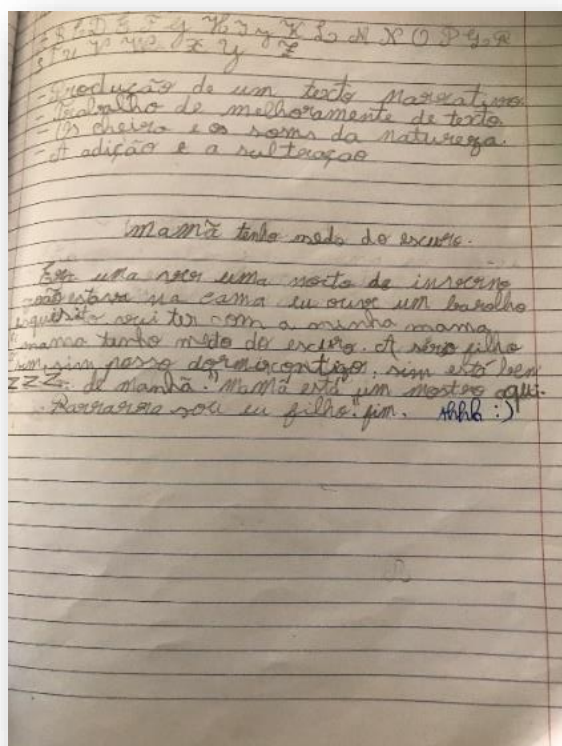 A B C D E F G H I J K L M N O P Q R
S T U V W X Y Z
-Produção de um texto narrativo
-Trabalho de melhoramente de texto.
-Os cheiro e os soms da natureza.
-A adição e a subtraçao
Mamã tenho medo do escuro.
Era uma vez uma noite de inverno
estava na cama eu ouve um baralho
esquisito ter com a minha mama.
"mama tenho medo do escuro. A sério filho
sim, sim posso dormir contigo, sim está bem
zzz. de manhã. "Mamã está um mostro aqui.
sou eu filho." fim. ahhh :)